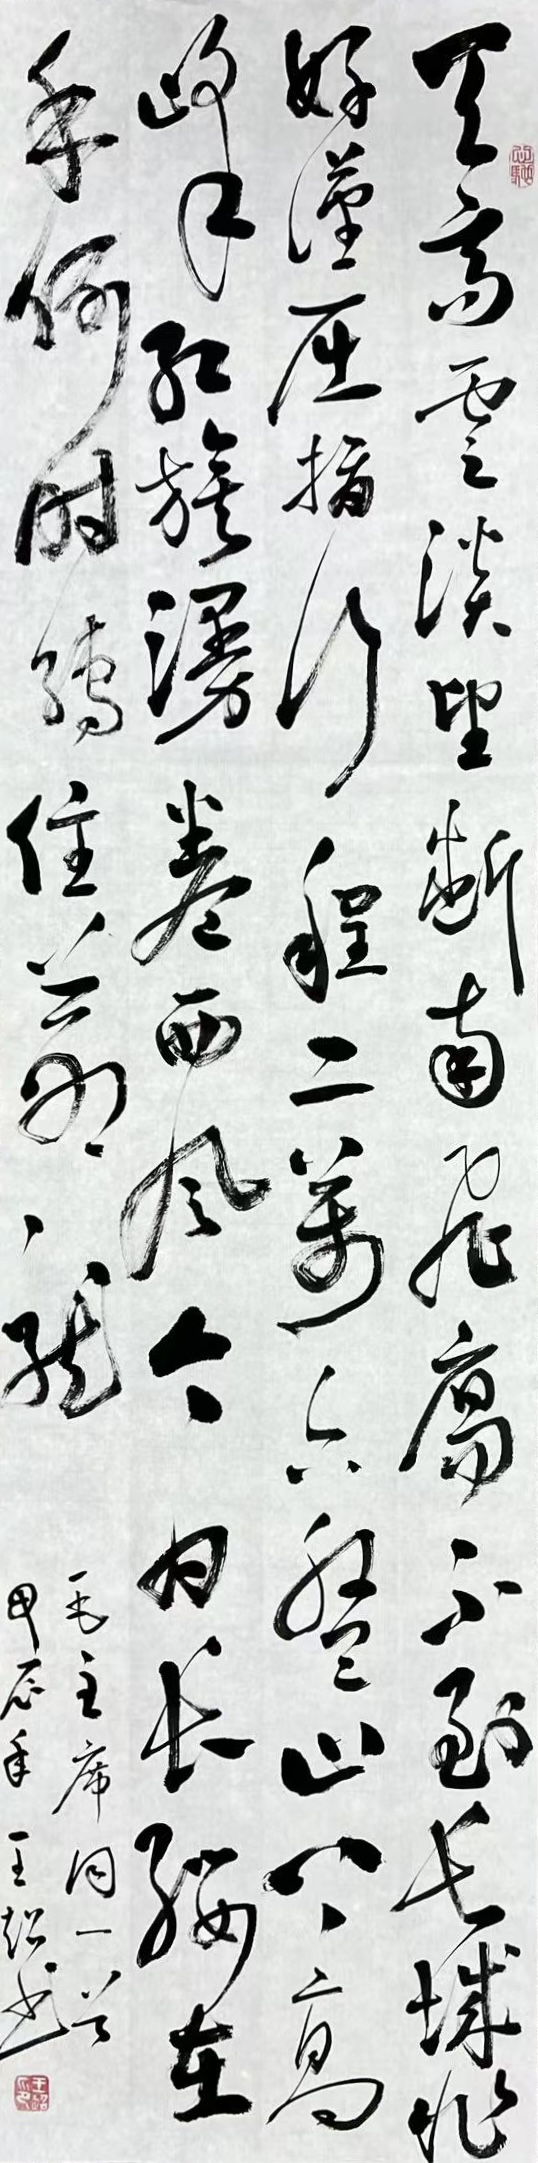 天高雲淡望断南飛雁不到长城非
好漢屈指行程二萬六盤山上高
峰红旗漫卷西风今日长缨在
手何时缚住蒼龍
毛主席词一首
甲辰年王書